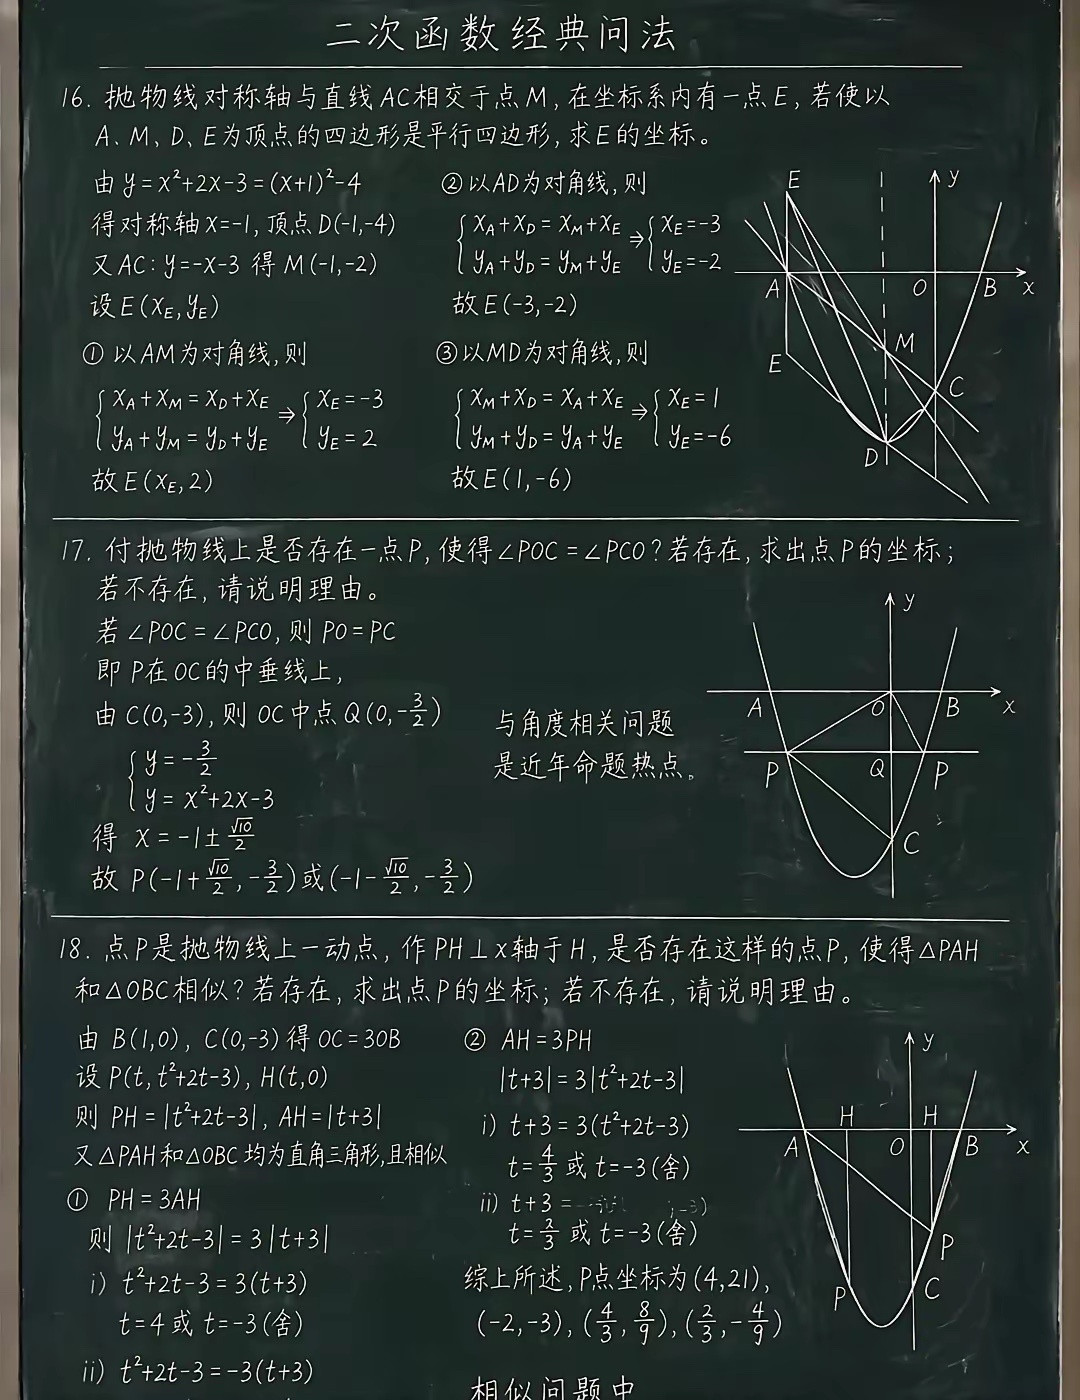 二次函数经典问法
16. 抛物线对称轴与直线AC相交于点M, 在坐标系内有一点E, 若使以
A、M、D、E为顶点的四边形是平行四边形, 求E的坐标。
由 y=x²+2x-3=(x+1)²-4
得对称轴 x=-1, 顶点D(-1,-4)
又AC: y=-x-3 得 M(-1,-2)
设 E(x_E, y_E)
① 以AM为对角线, 则
{ x_A+x_M=x_D+x_E ⇒ { x_E=-3
y_A+y_M=y_D+y_E y_E=2
故 E(x_E, 2)
② 以AD为对角线, 则
{ x_A+x_D=x_M+x_E ⇒ { x_E=-3
y_A+y_D=y_M+y_E y_E=-2
故 E(-3,-2)
③ 以MD为对角线, 则
{ x_M+x_D=x_A+x_E ⇒ { x_E=1
y_M+y_D=y_A+y_E y_E=-6
故 E(1,-6)
E
y
A
O
B
x
M
E
C
D
17. 付抛物线上是否存在一点P, 使得∠POC=∠PCO? 若存在, 求出点P的坐标;
若不存在, 请说明理由。
若 ∠POC=∠PCO, 则 PO=PC
即 P在OC的中垂线上,
由 C(0,-3), 则 OC中点 Q(0,-3/2)
{ y=-3/2
y=x²+2x-3
得 x=-1±√10/2
故 P(-1+√10/2,-3/2)或(-1-√10/2,-3/2)
与角度相关问题
是近年命题热点。
y
A
O
B
x
P
Q
P
C
18. 点P是抛物线上一动点, 作PH⊥x轴于H, 是否存在这样的点P, 使得△PAH
和△OBC相似? 若存在, 求出点P的坐标; 若不存在, 请说明理由。
由 B(1,0), C(0,-3)得 OC=3OB
设 P(t, t²+2t-3), H(t,0)
则 PH=|t²+2t-3|, AH=|t+3|
又△PAH和△OBC均为直角三角形,且相似
① PH=3AH
则 |t²+2t-3|=3|t+3|
i) t²+2t-3=3(t+3)
t=4 或 t=-3(舍)
ii) t²+2t-3=-3(t+3)
② AH=3PH
|t+3|=3|t²+2t-3|
i) t+3=3(t²+2t-3)
t=4/3 或 t=-3(舍)
ii) t+3=
t=2/3 或 t=-3(舍)
综上所述, P点坐标为(4,21),
(-2,-3), (4/3, 8/9), (2/3,-4/9)
相似问题中
y
H
H
A
O
B
x
P
P
C